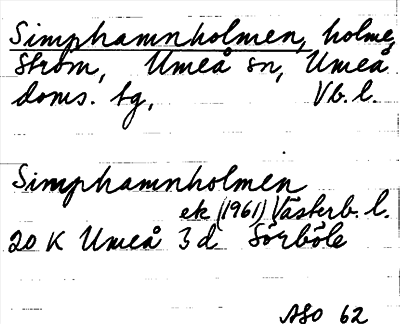 Simphamnholmen, holme,
Ström, Umeå sn, Umeå
doms. tg, Vb. l.
Simphamnholmen
ek (1961) Västerb. l.
20 K Umeå 3 d Sörböle
ASO 62